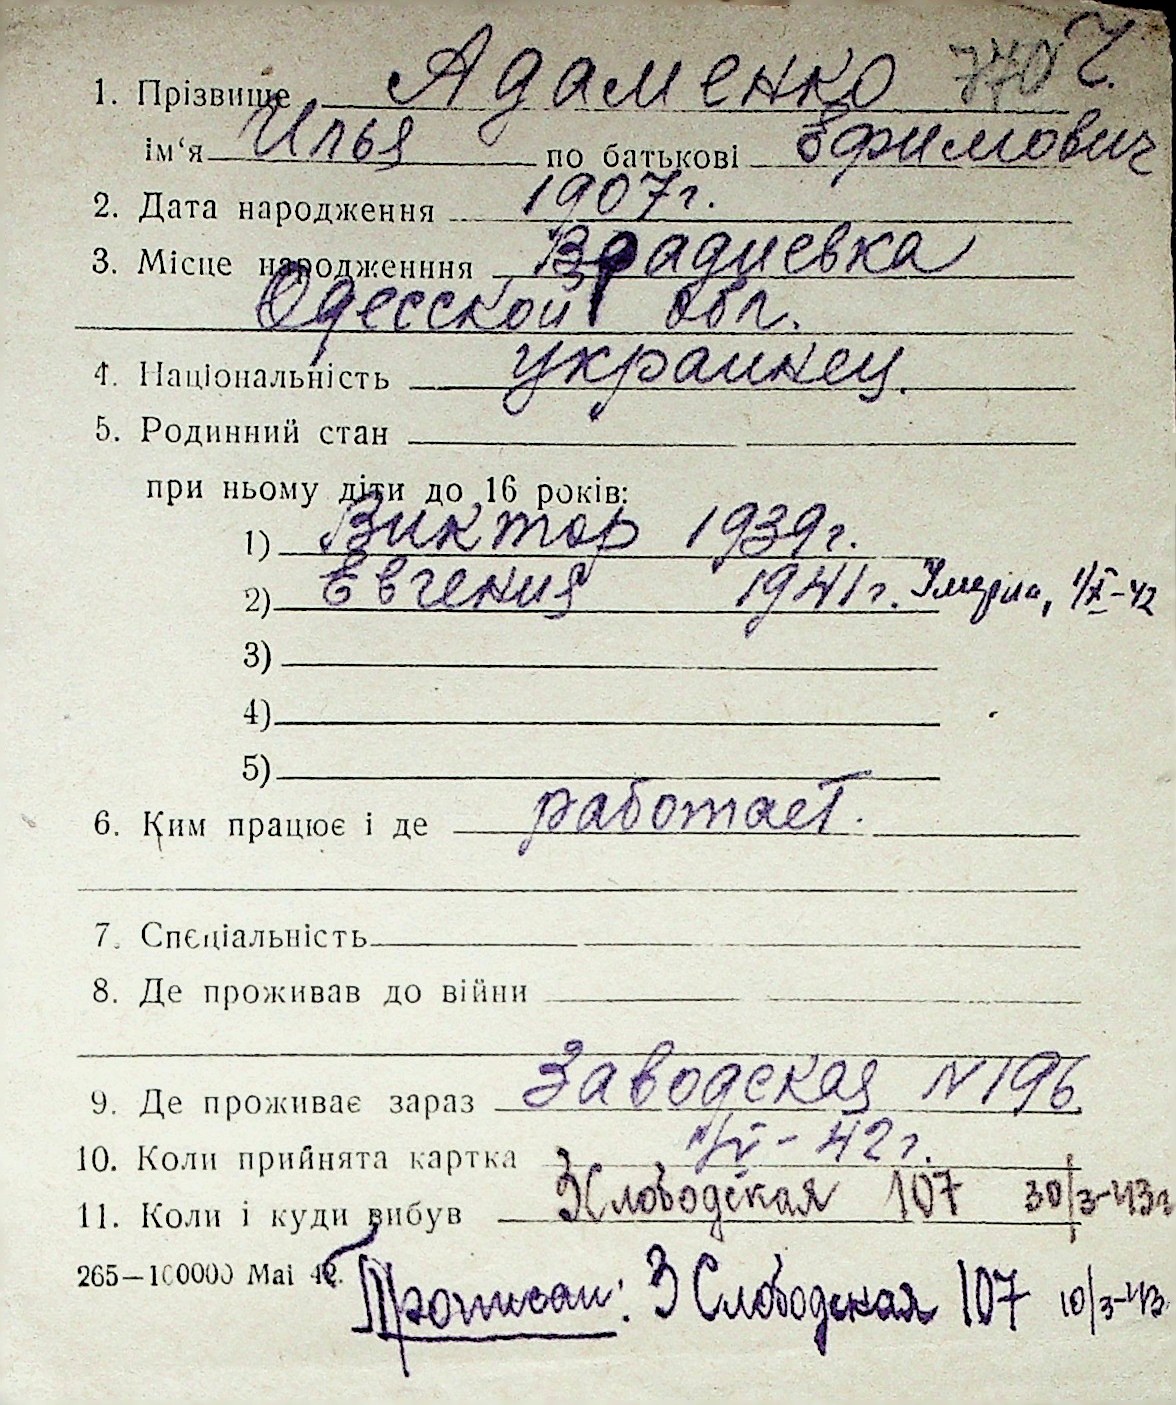 1. Прізвище Адаменко 770 Ч.
ім‘я Илья по батькові Ефимович
2. Дата народження 1907г.
3. Місце народженння Врадиевка
Одесской обл.
4. Національність украинец.
5. Родинний стан
при ньому діти до 16 років:
1) Виктор 1939г.
2) Евгения 1941г. Умерла, 1/X-42
3)
4)
5)
6. Ким працює і де работает.
7. Спєціальність
8. Де проживав до війни
9. Де проживає зараз Заводская N 196
10. Коли прийнята картка /V-42г.
11. Коли і куди вибув 3 Слободская 107 30/3-43г
265—100000 Маі 42.
Прописан: 3 Слободская 107 10/3-43.